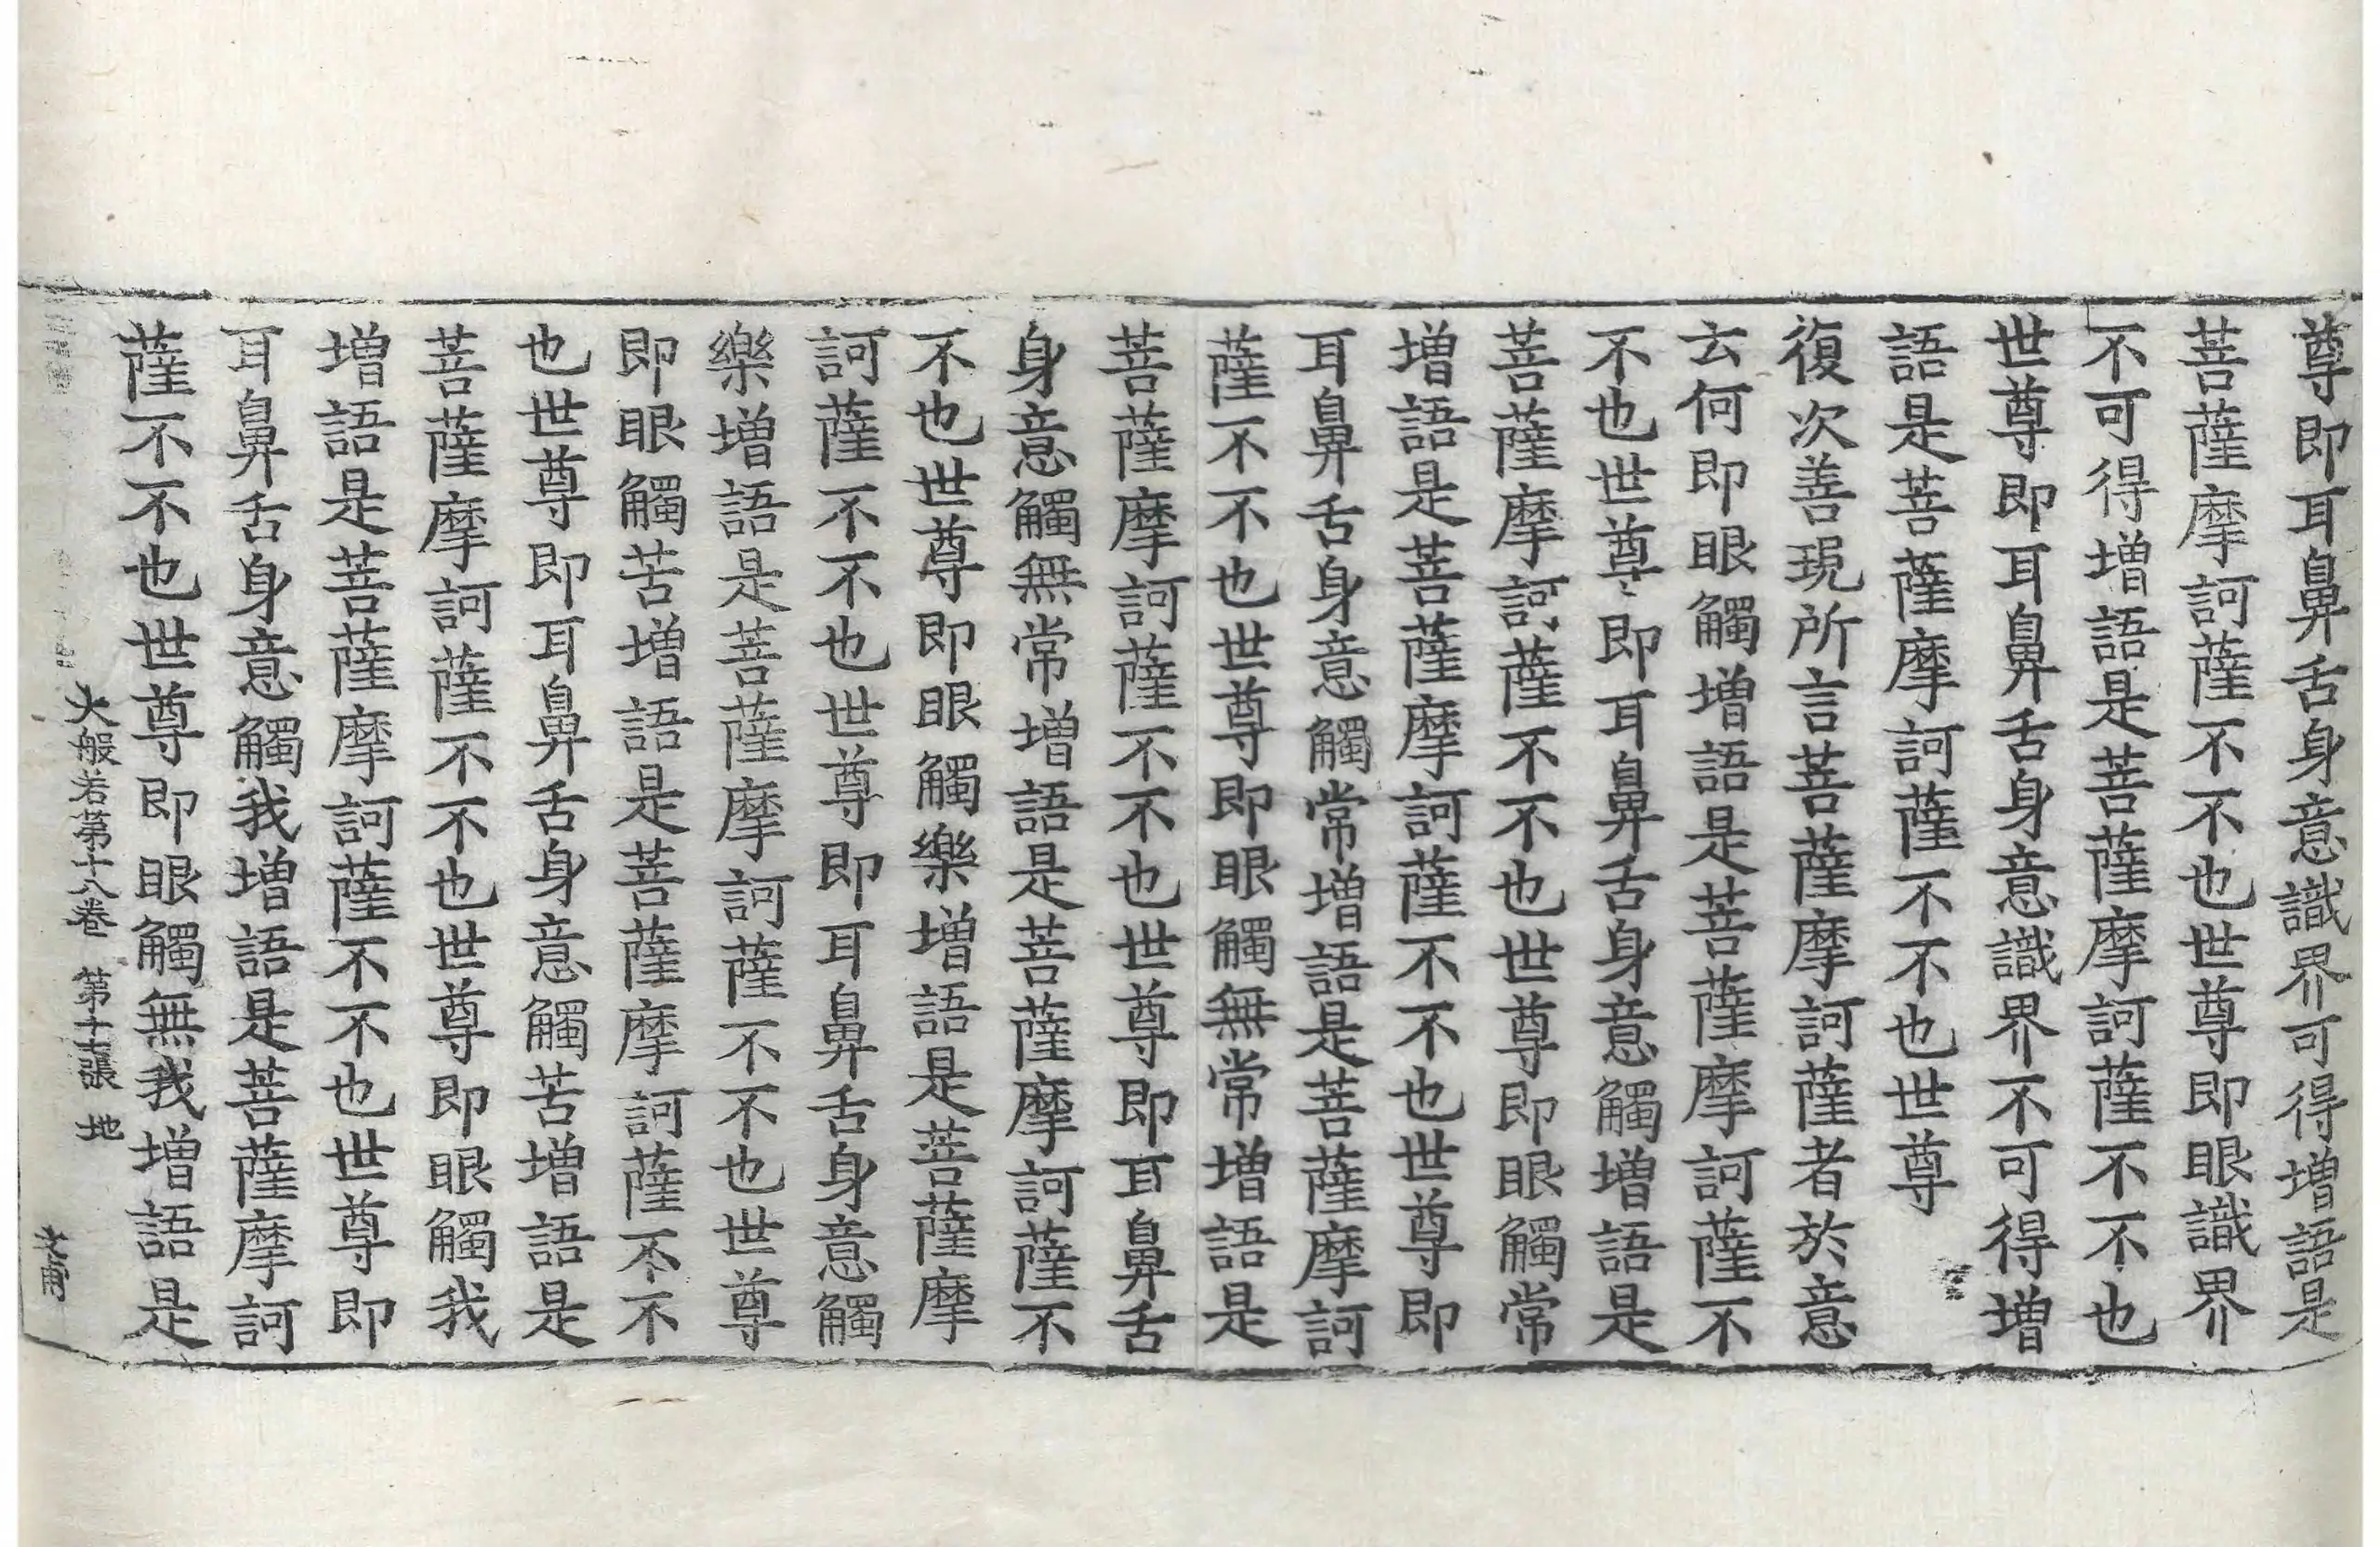 尊即耳鼻舌身意識界可得增語是
菩薩摩訶薩不不也世尊即眼識界
不可得增語是菩薩摩訶薩不不也
世尊即耳鼻舌身意識界不可得增
語是菩薩摩訶薩不不也世尊
復次善現所言菩薩摩訶薩者於意
云何即眼觸增語是菩薩摩訶薩不
不也世尊即耳鼻舌身意觸增語是
菩薩摩訶薩不不也世尊即眼觸常
增語是菩薩摩訶薩不不也世尊即
耳鼻舌身意觸常增語是菩薩摩訶
薩不不也世尊即眼觸無常增語是
菩薩摩訶薩不不也世尊即耳鼻舌
身意觸無常增語是菩薩摩訶薩不
不也世尊即眼觸樂增語是菩薩摩
訶薩不不也世尊即耳鼻舌身意觸
樂增語是菩薩摩訶薩不不也世尊
即眼觸苦增語是菩薩摩訶薩不不
也世尊即耳鼻舌身意觸苦增語是
菩薩摩訶薩不不也世尊即眼觸我
增語是菩薩摩訶薩不不也世尊即
耳鼻舌身意觸我增語是菩薩摩訶
薩不不也世尊即眼觸無我增語是
大般若第十八卷 第十二張 地